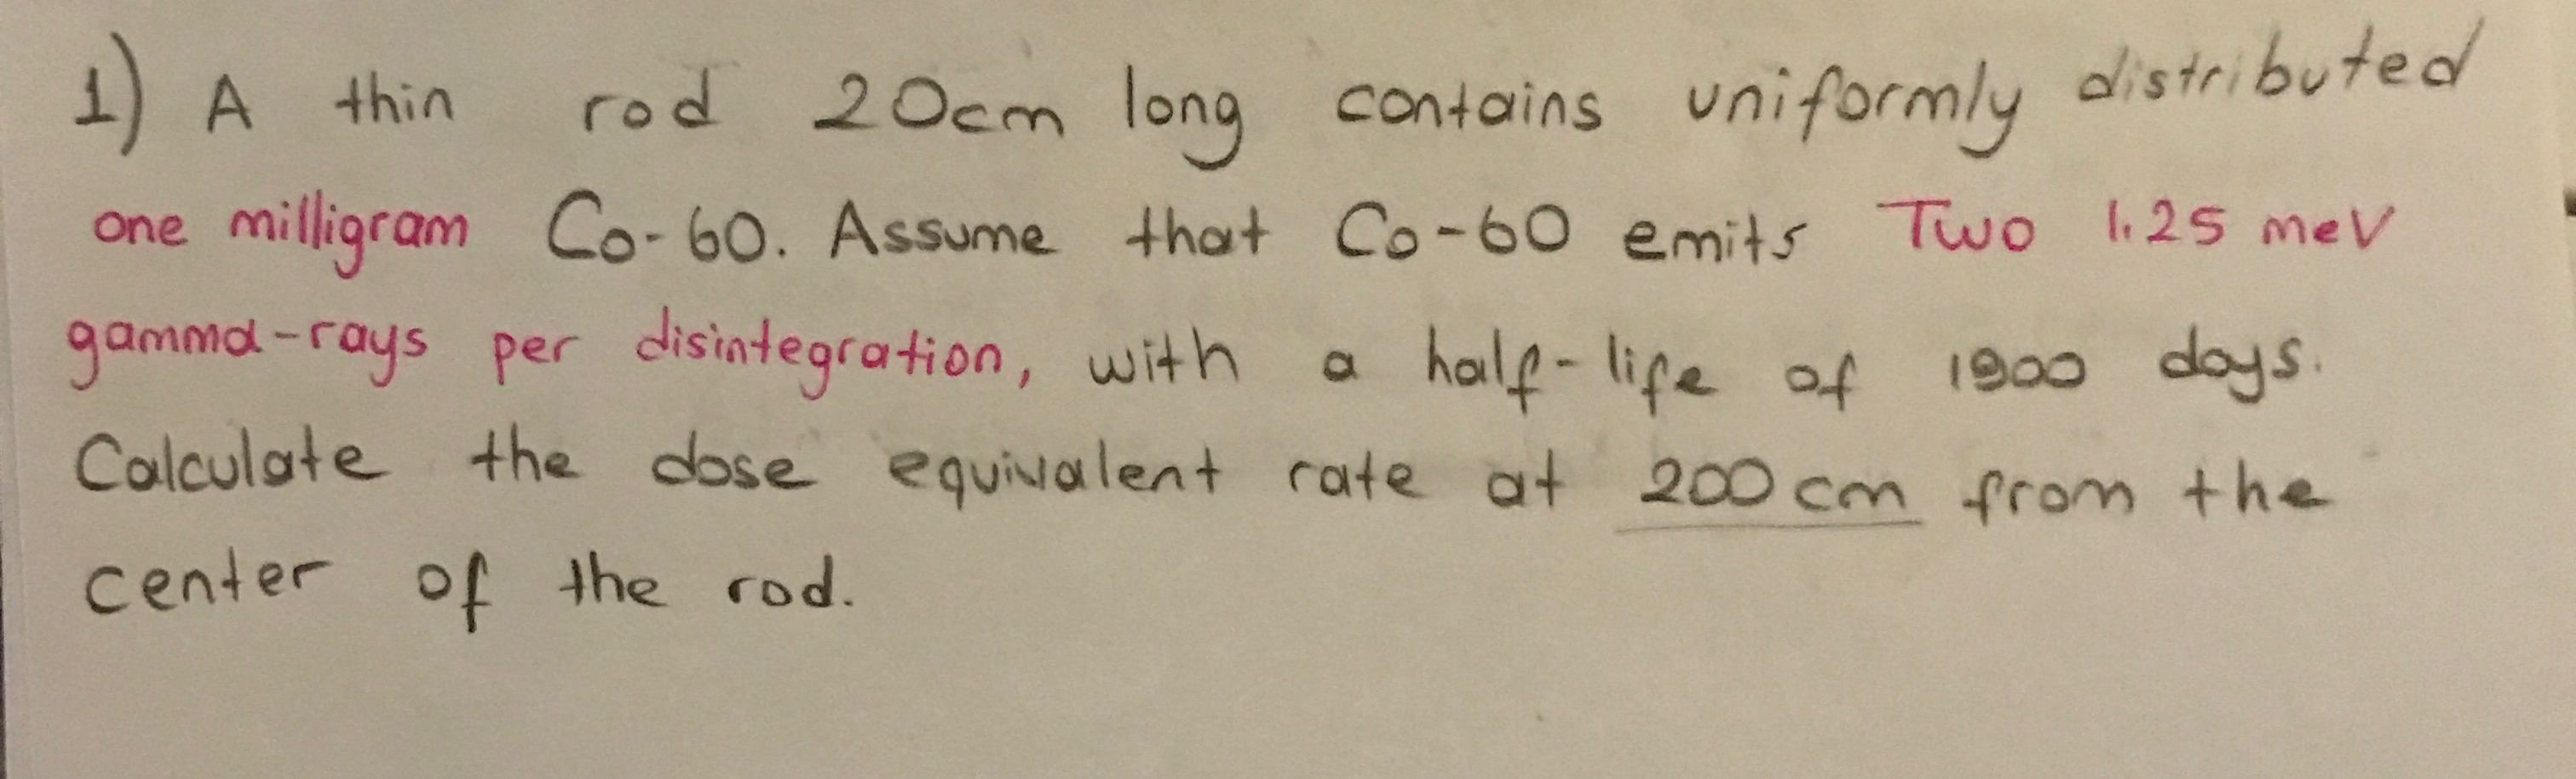 1) A thin rod 20cm long contains uniformly distributed
one milligram Co-60. Assume that Co-60 emits Two 1.25 meV
gamma-rays per disintegration, with a half-life of 1900 days.
Calculate the dose equivalent rate at 200 cm from the
center of the rod.